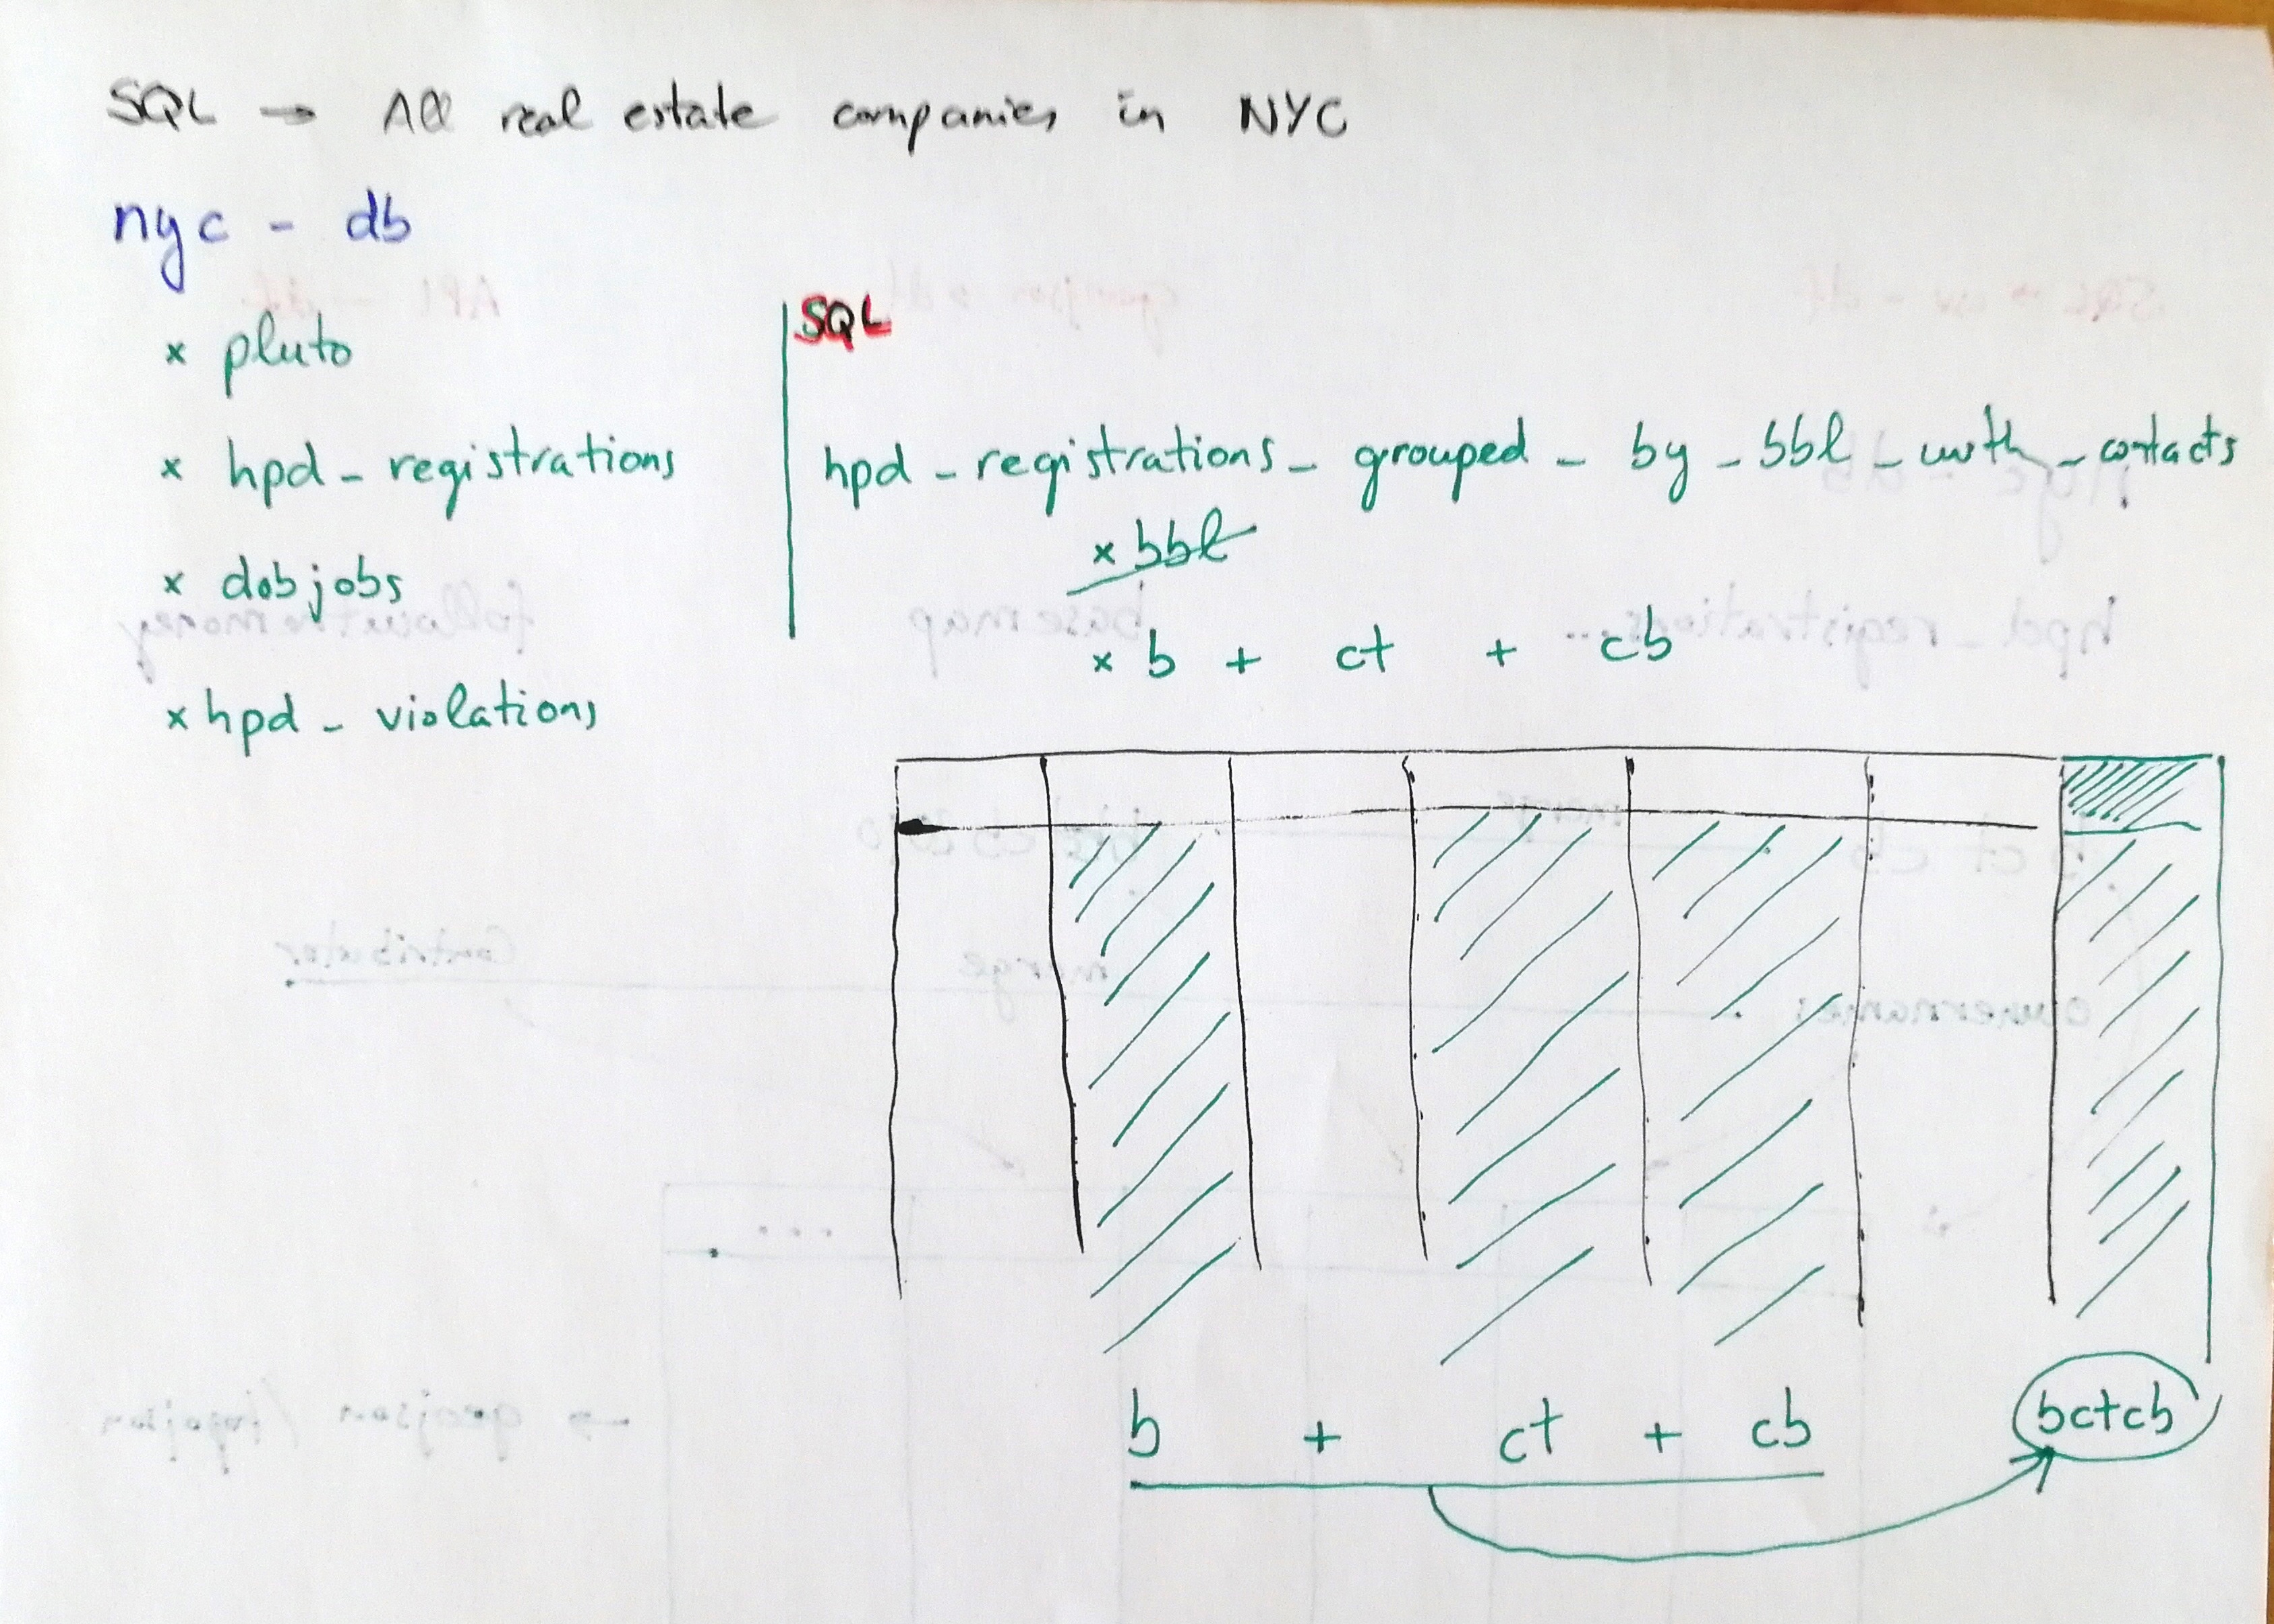 SQL → All real estate companies in NYC
nyc - db
x pluto
x hpd_registrations
x dobjobs
x hpd_violations
SQL
hpd_registrations_grouped_by_bbl_with_contacts
x bbl
x b + ct + cb
b + ct + cb
bctcb